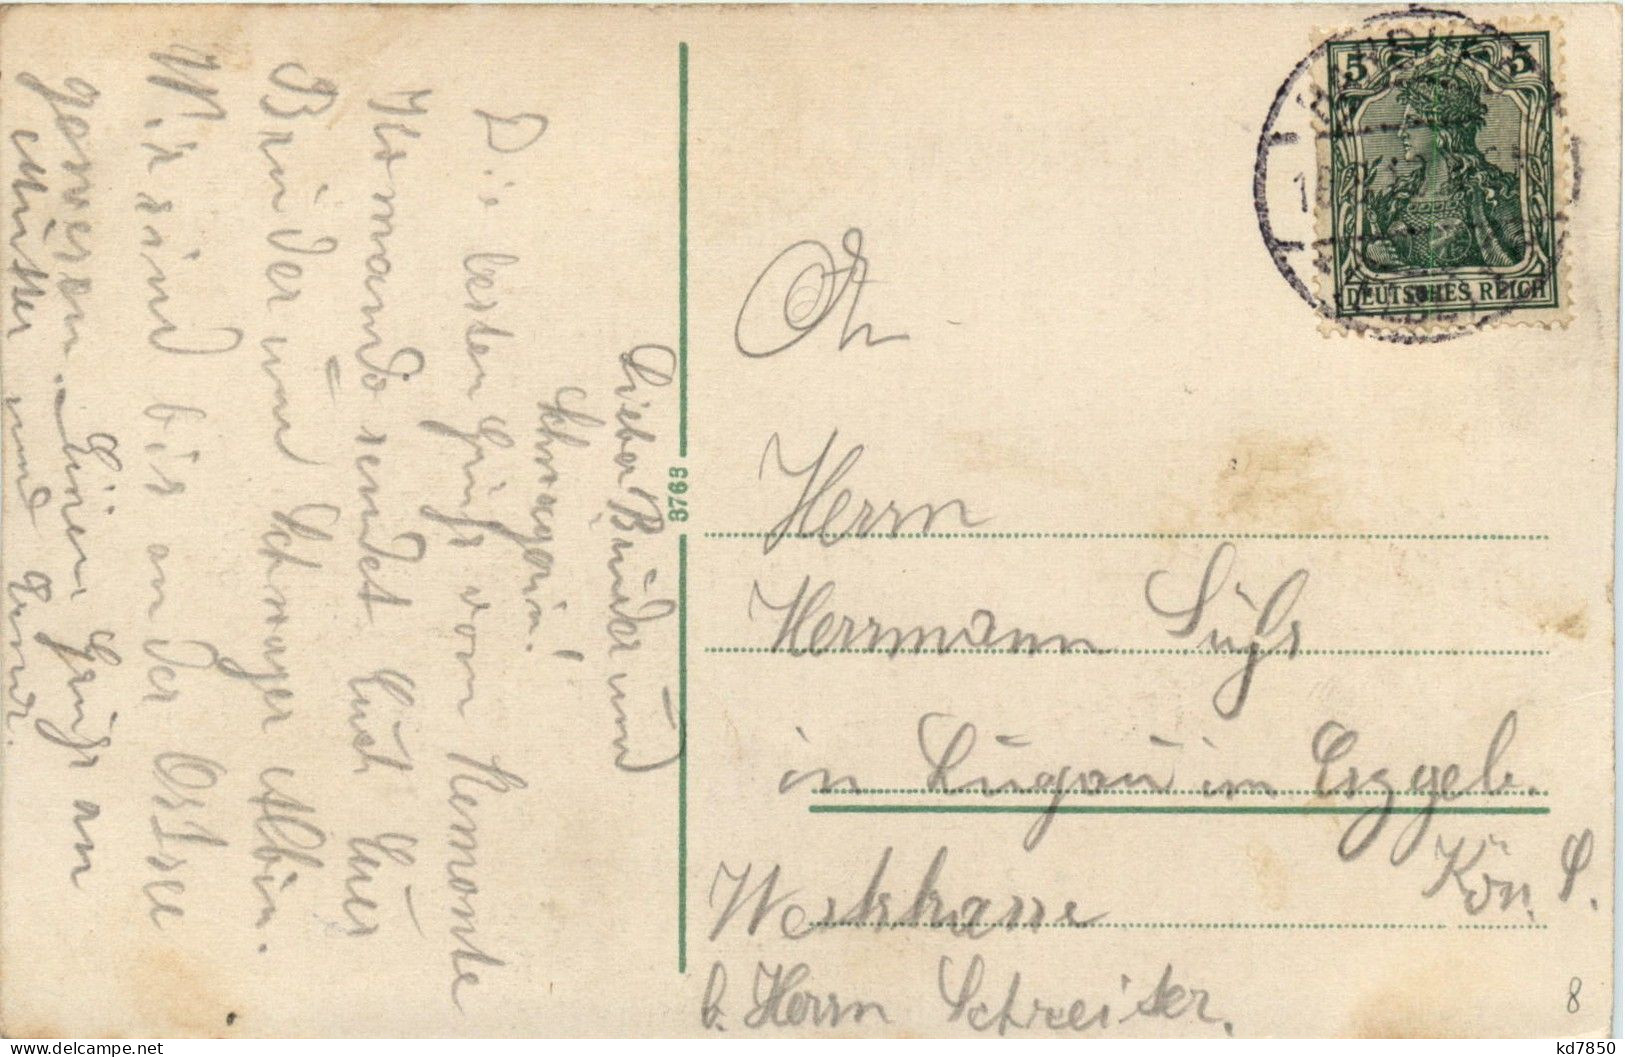 Lieber Bruder und
Schwägerin!
Die besten Grüße vom Remonte
Kommando sendet Euch Euer
Bruder und Schwager Albin.
Wir sind bis an der Ostsee
gewesen. Einen Gruß an
Mutter und
9768
An
Herrn
Herrmann Sühs
in Lugau im Erzgeb.
Kön. S.
Weststrasse
b. Herrn Schreiter.
5 5
DEUTSCHES REICH
8
kd7850